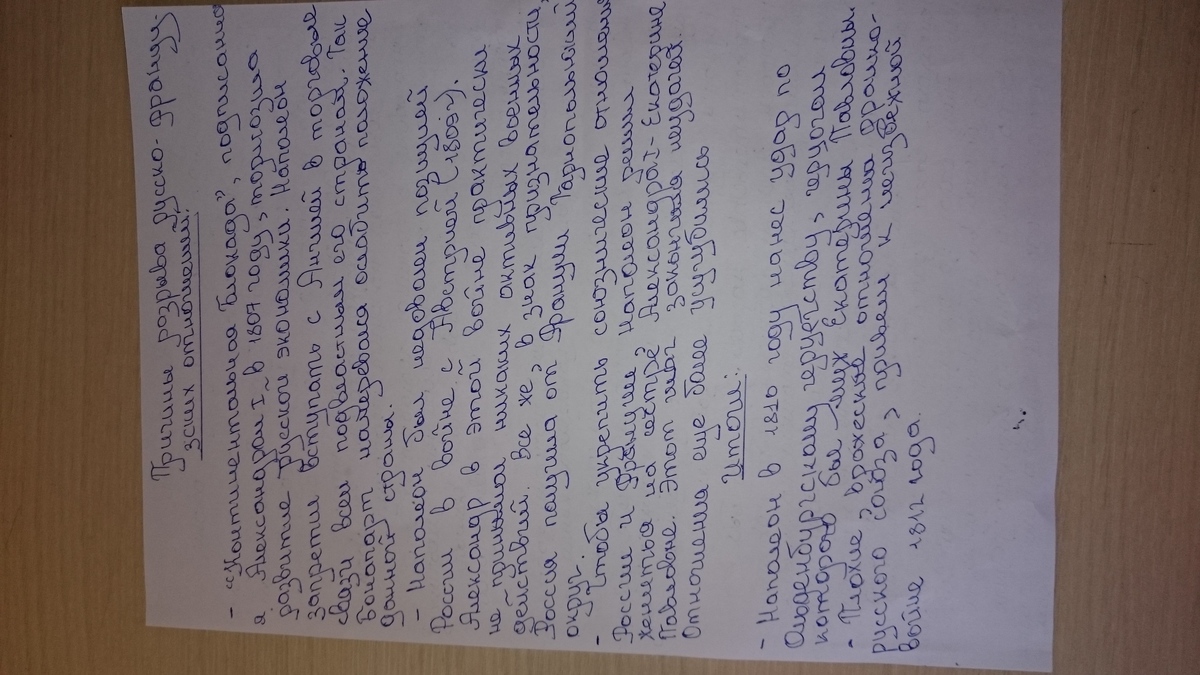 Причины разрыва русско-францу-
зских отношений:
- "Континентальная Блокада", подписание
я Александром I в 1807 году, тормозила
развитие Русской экономики. Наполеон
запретил вступать с Англией в торговые
связи всем подвластным его странам. Так
Бонапарт намеревался ослабить положение
данной страны.
- Наполеон был недоволен позицией
России в войне с Австрией (1809г).
Александр в этой войне практически
не принимал никаких активных военных
действий. Все же, в знак признательности,
Россия получила от Франции Тарнопольский
округ.
- Чтобы укрепить союзнические отношения
России и Франции Наполеон решил
женится на сестре Александра I - Екатерине
Павловне. Этот шаг закончила неудачей.
Отношения еще более усугубились
Итоги:
- Наполеон в 1810 году нанес удар по
Ольденбургскому герцегству, герцогом
которого был муж Екатерины Павловны.
- Плохие, вражеские отношения франко-
русского союза, привели к неизбежной
войне 1812 года.